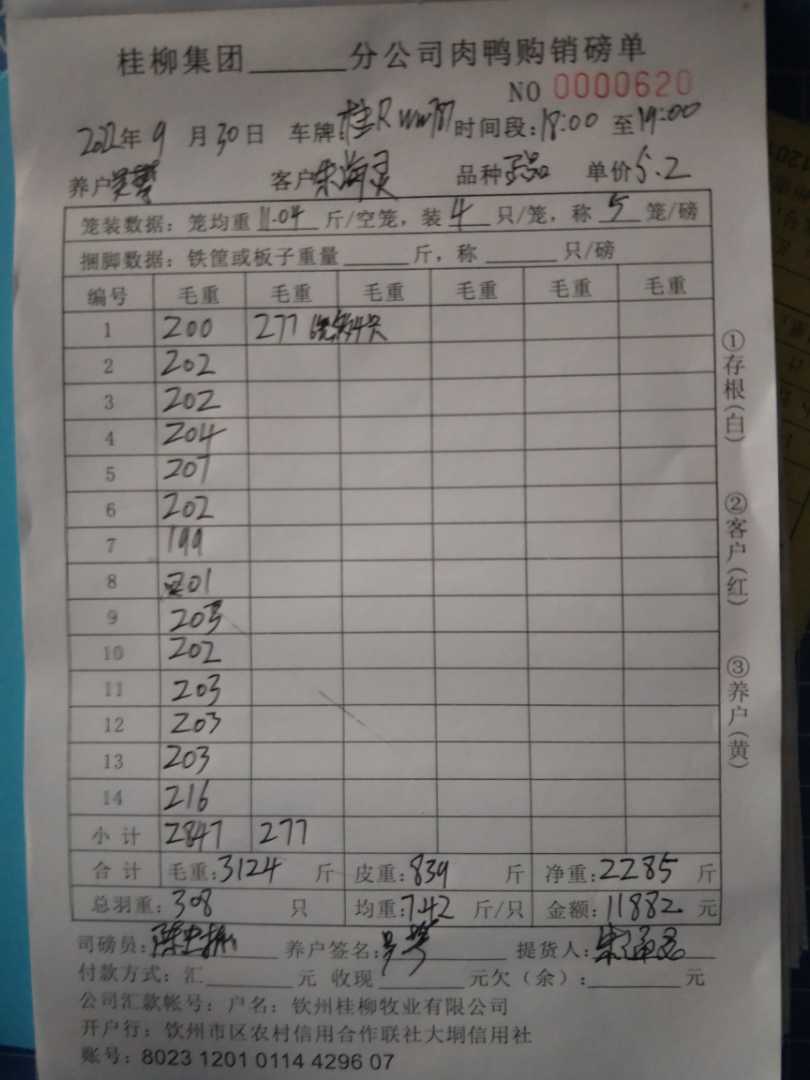 桂柳集团______分公司肉鸭购销磅单
NO 0000620
2022年9月30日 车牌桂R 时间段:18:00至19:00
养户吴 客户宋海灵 品种 单价5.2
笼装数据：笼均重11.04斤/空笼，装4只/笼，称5笼/磅
捆脚数据：铁筐或板子重量______斤，称______只/磅
编号 毛重 毛重 毛重 毛重 毛重 毛重
1 200 277
2 202
3 202
4 204
5 207
6 202
7 199
8 201
9 203
10 202
11 203
12 203
13 203
14 216
小计 2847 277
合计 毛重:3124斤 皮重:839斤 净重:2285斤
总羽重:308只 均重:7.42斤/只 金额:11882元
司磅员:陈 养户签名:吴 提货人:宋海灵
付款方式：汇______元 收现______元欠（余）:______元
公司汇款帐号：户名：钦州桂柳牧业有限公司
开户行：钦州市区农村信用合作联社大垌信用社
账号：8023 1201 0114 4296 07
①存根(白) ②客户(红) ③养户(黄)